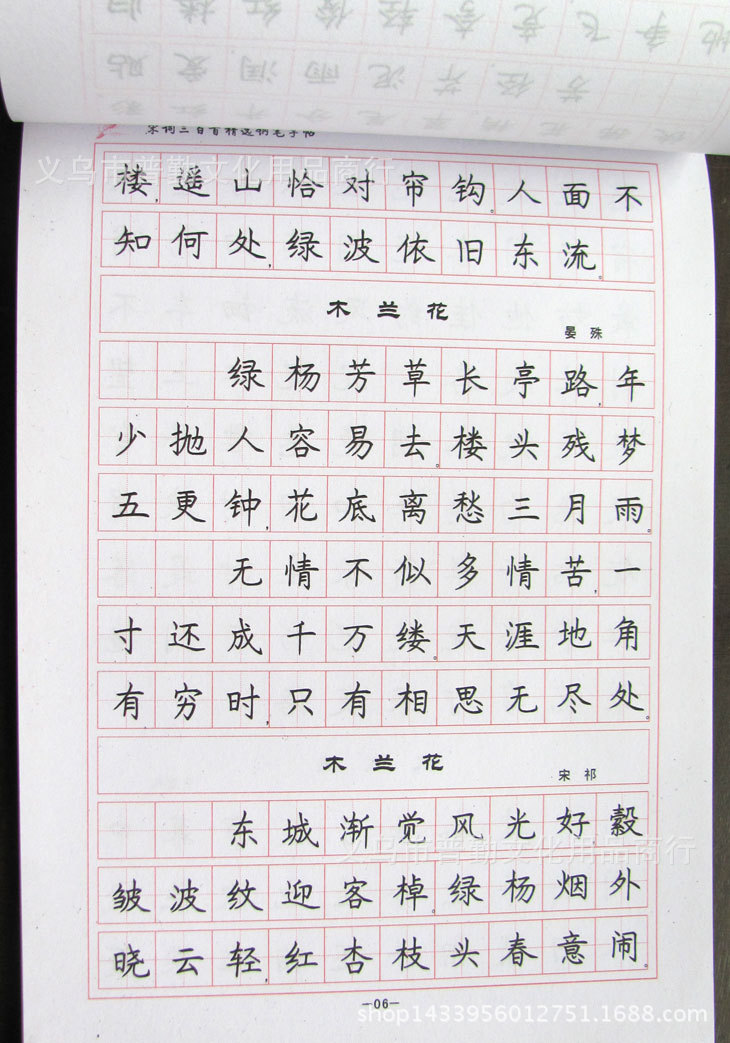 宋词三百首精选钢笔字帖
义乌市普勤文化用品商行
楼,遥山恰对帘钩。人面不
知何处,绿波依旧东流。
木兰花
晏殊
绿杨芳草长亭路,年
少抛人容易去。楼头残梦
五更钟,花底离愁三月雨。
无情不似多情苦,一
寸还成千万缕。天涯地角
有穷时,只有相思无尽处。
木兰花
宋祁
东城渐觉风光好,縠
义乌市普勤文化用品商行
皱波纹迎客棹。绿杨烟外
晓云轻,红杏枝头春意闹。
—06—
shop1433956012751.1688.com